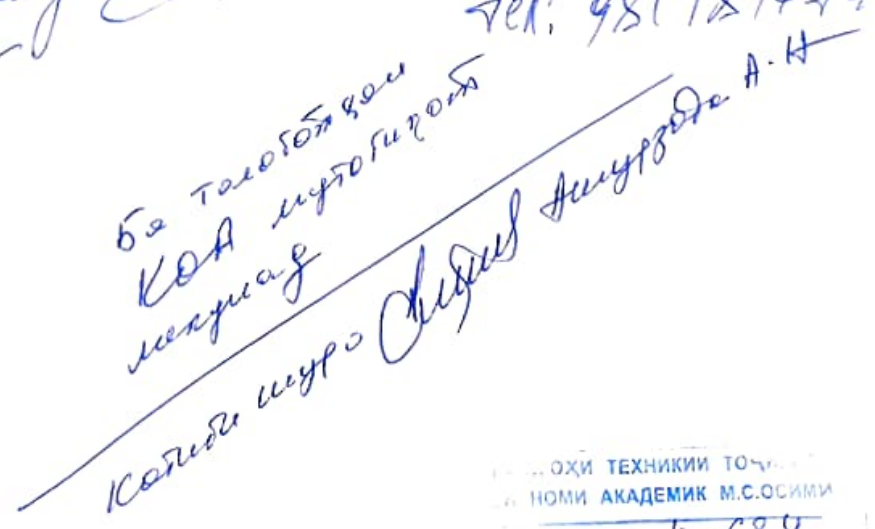 Тел: 981
Ба талаботҳои
КОА мутобиқат
мекунад
Котиби шуро Ашурзода А.Н
ОҲИ ТЕХНИКИИ ТОҶИ
НОМИ АКАДЕМИК М.С.ОСИМИ